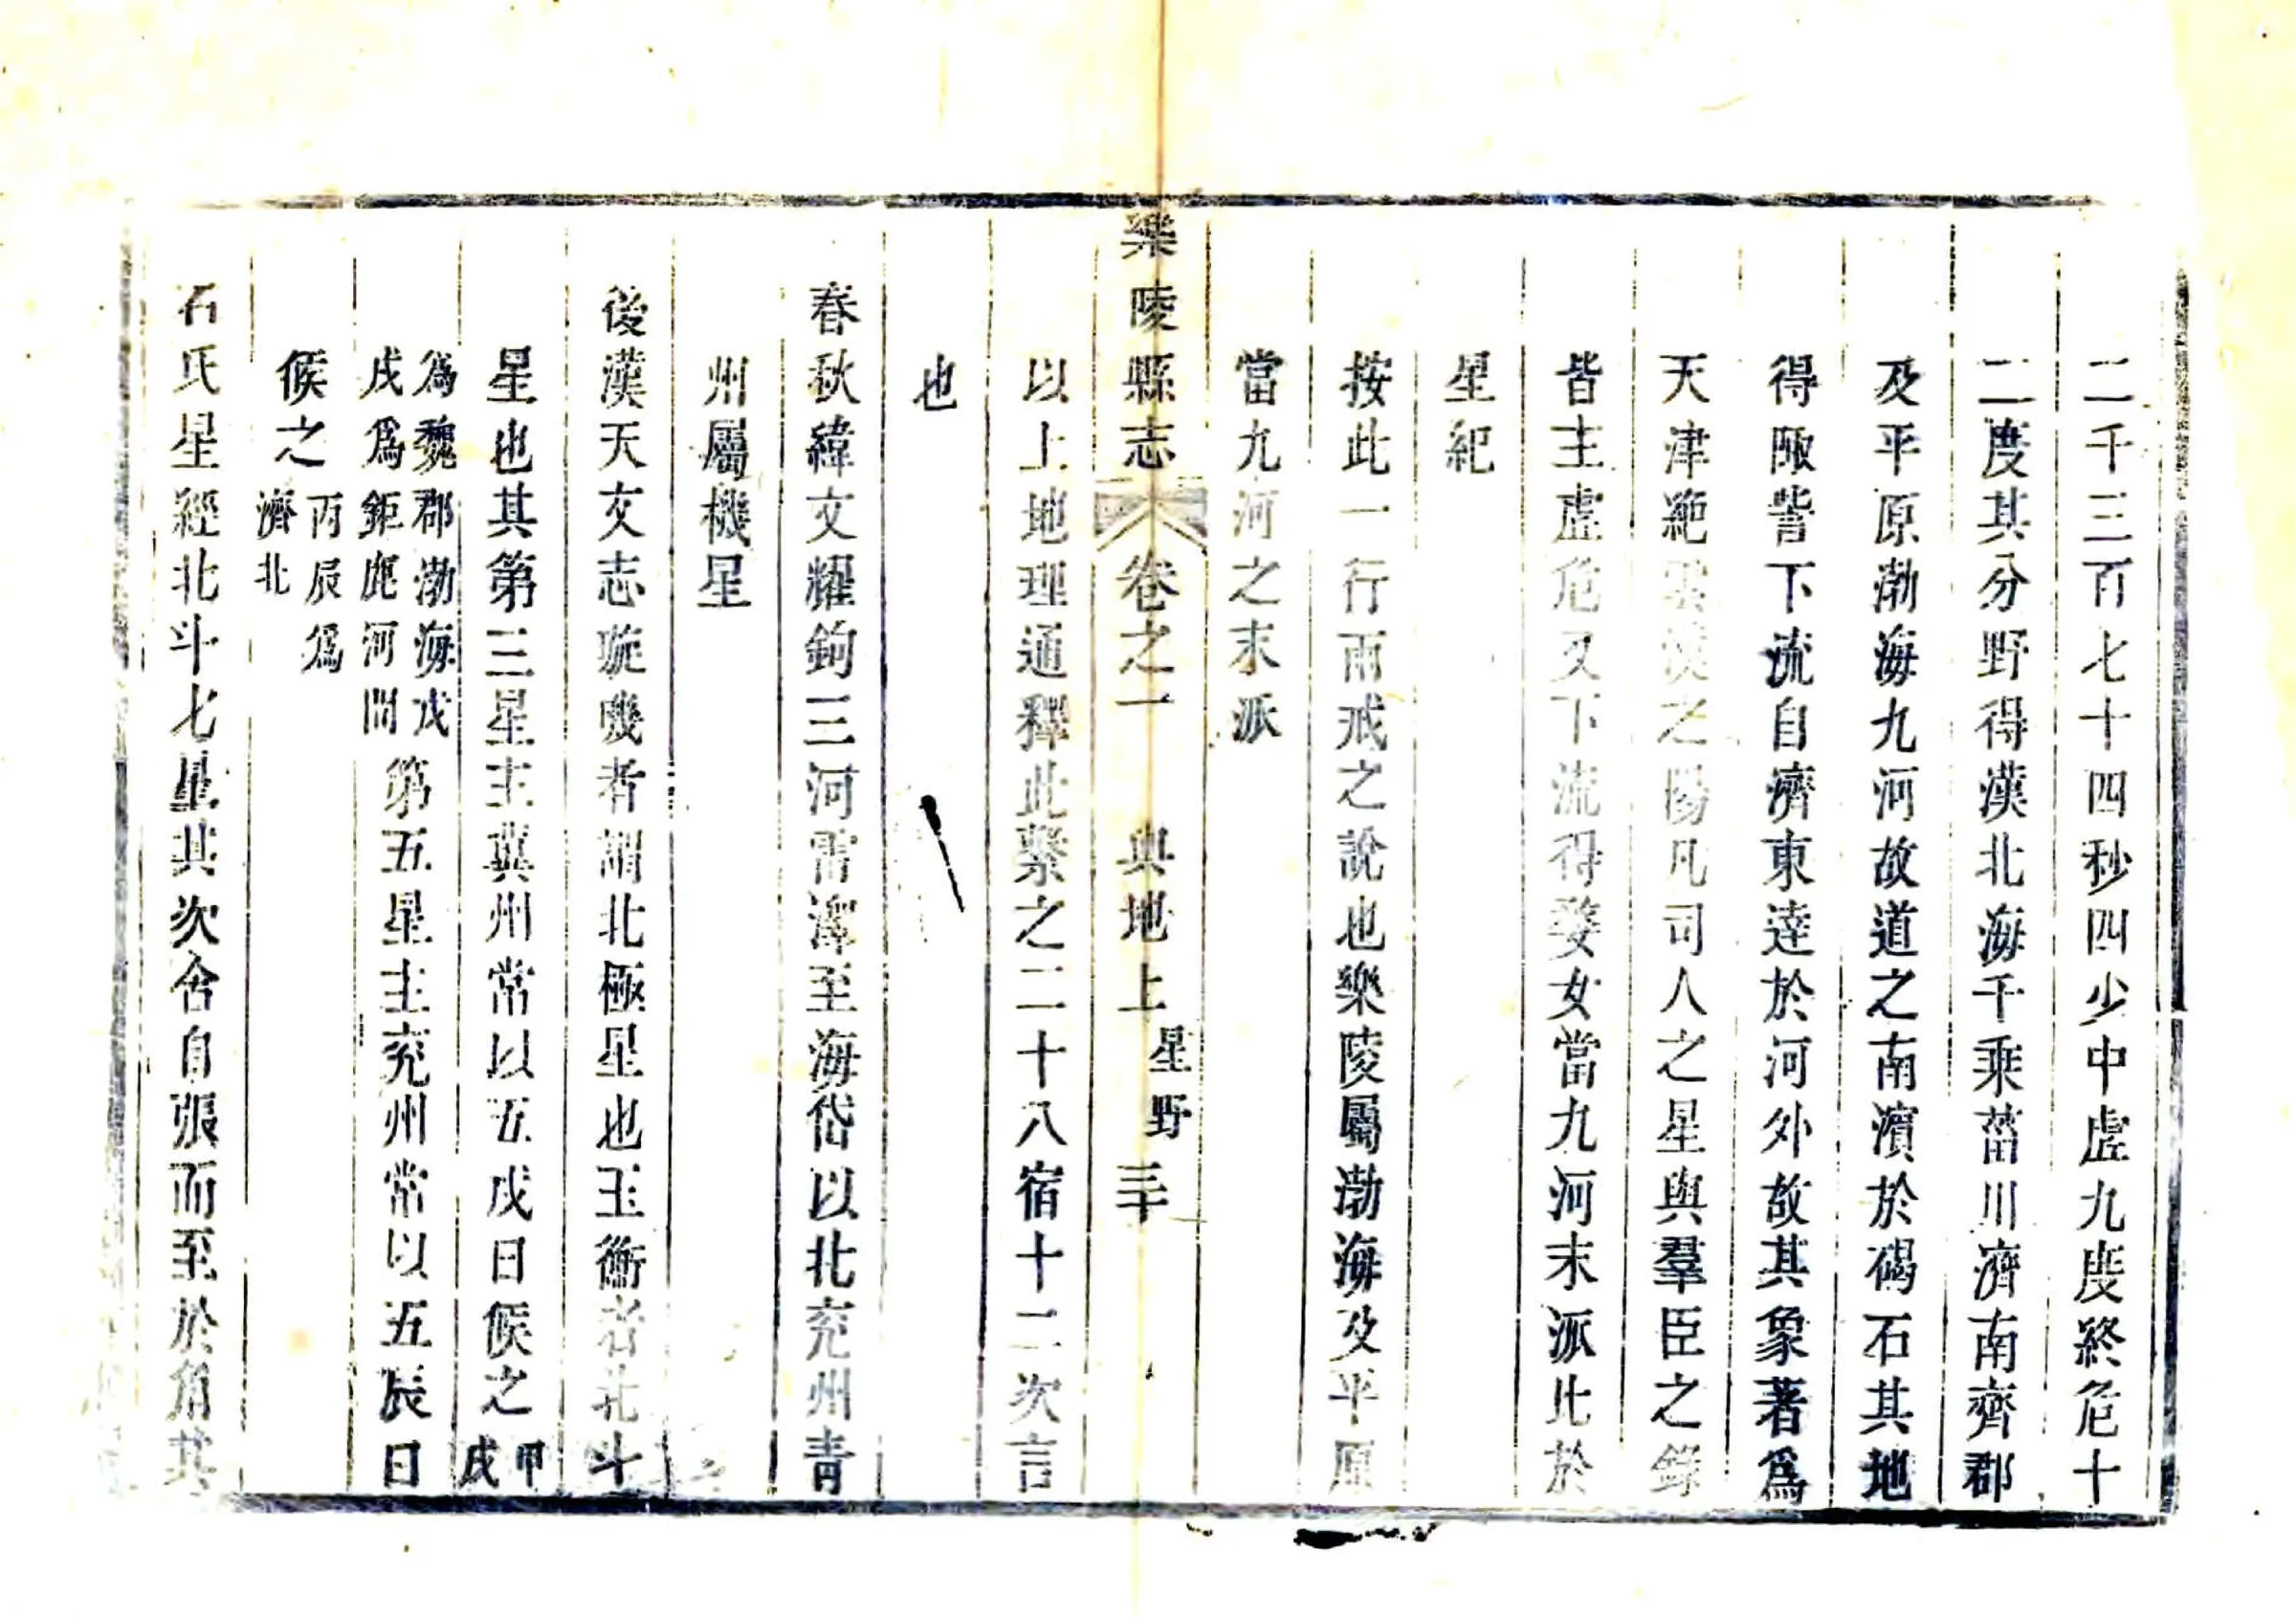 二千三百七十四秒四少中虛九度終危十
二度其分野得漢北海千乘菑川濟南齊郡
及平原渤海九河故道之南濱於碣石其地
得陬訾下流自濟東逹於河外故其象著爲
天津絶雲漢之陽凡司人之星與羣臣之錄
皆主虛危又下流得婺女當九河末派比於
星紀
按此一行兩戒之說也樂陵屬渤海及平原
當九河之末派
樂陵縣志 卷之一 輿地上 星野 三十
以上地理通釋此繫之二十八宿十二次言
也
春秋緯文耀鉤三河雷澤至海岱以北兖州青
州屬機星
後漢天文志璇璣者謂北極星也玉衡者北斗
星也其第三星主冀州常以五戌日候之甲戌
爲魏郡渤海戊戌爲鉅鹿河間第五星主兖州常以五辰日
候之丙辰爲濟北
石氏星經北斗七星其次舍自張而至於角其